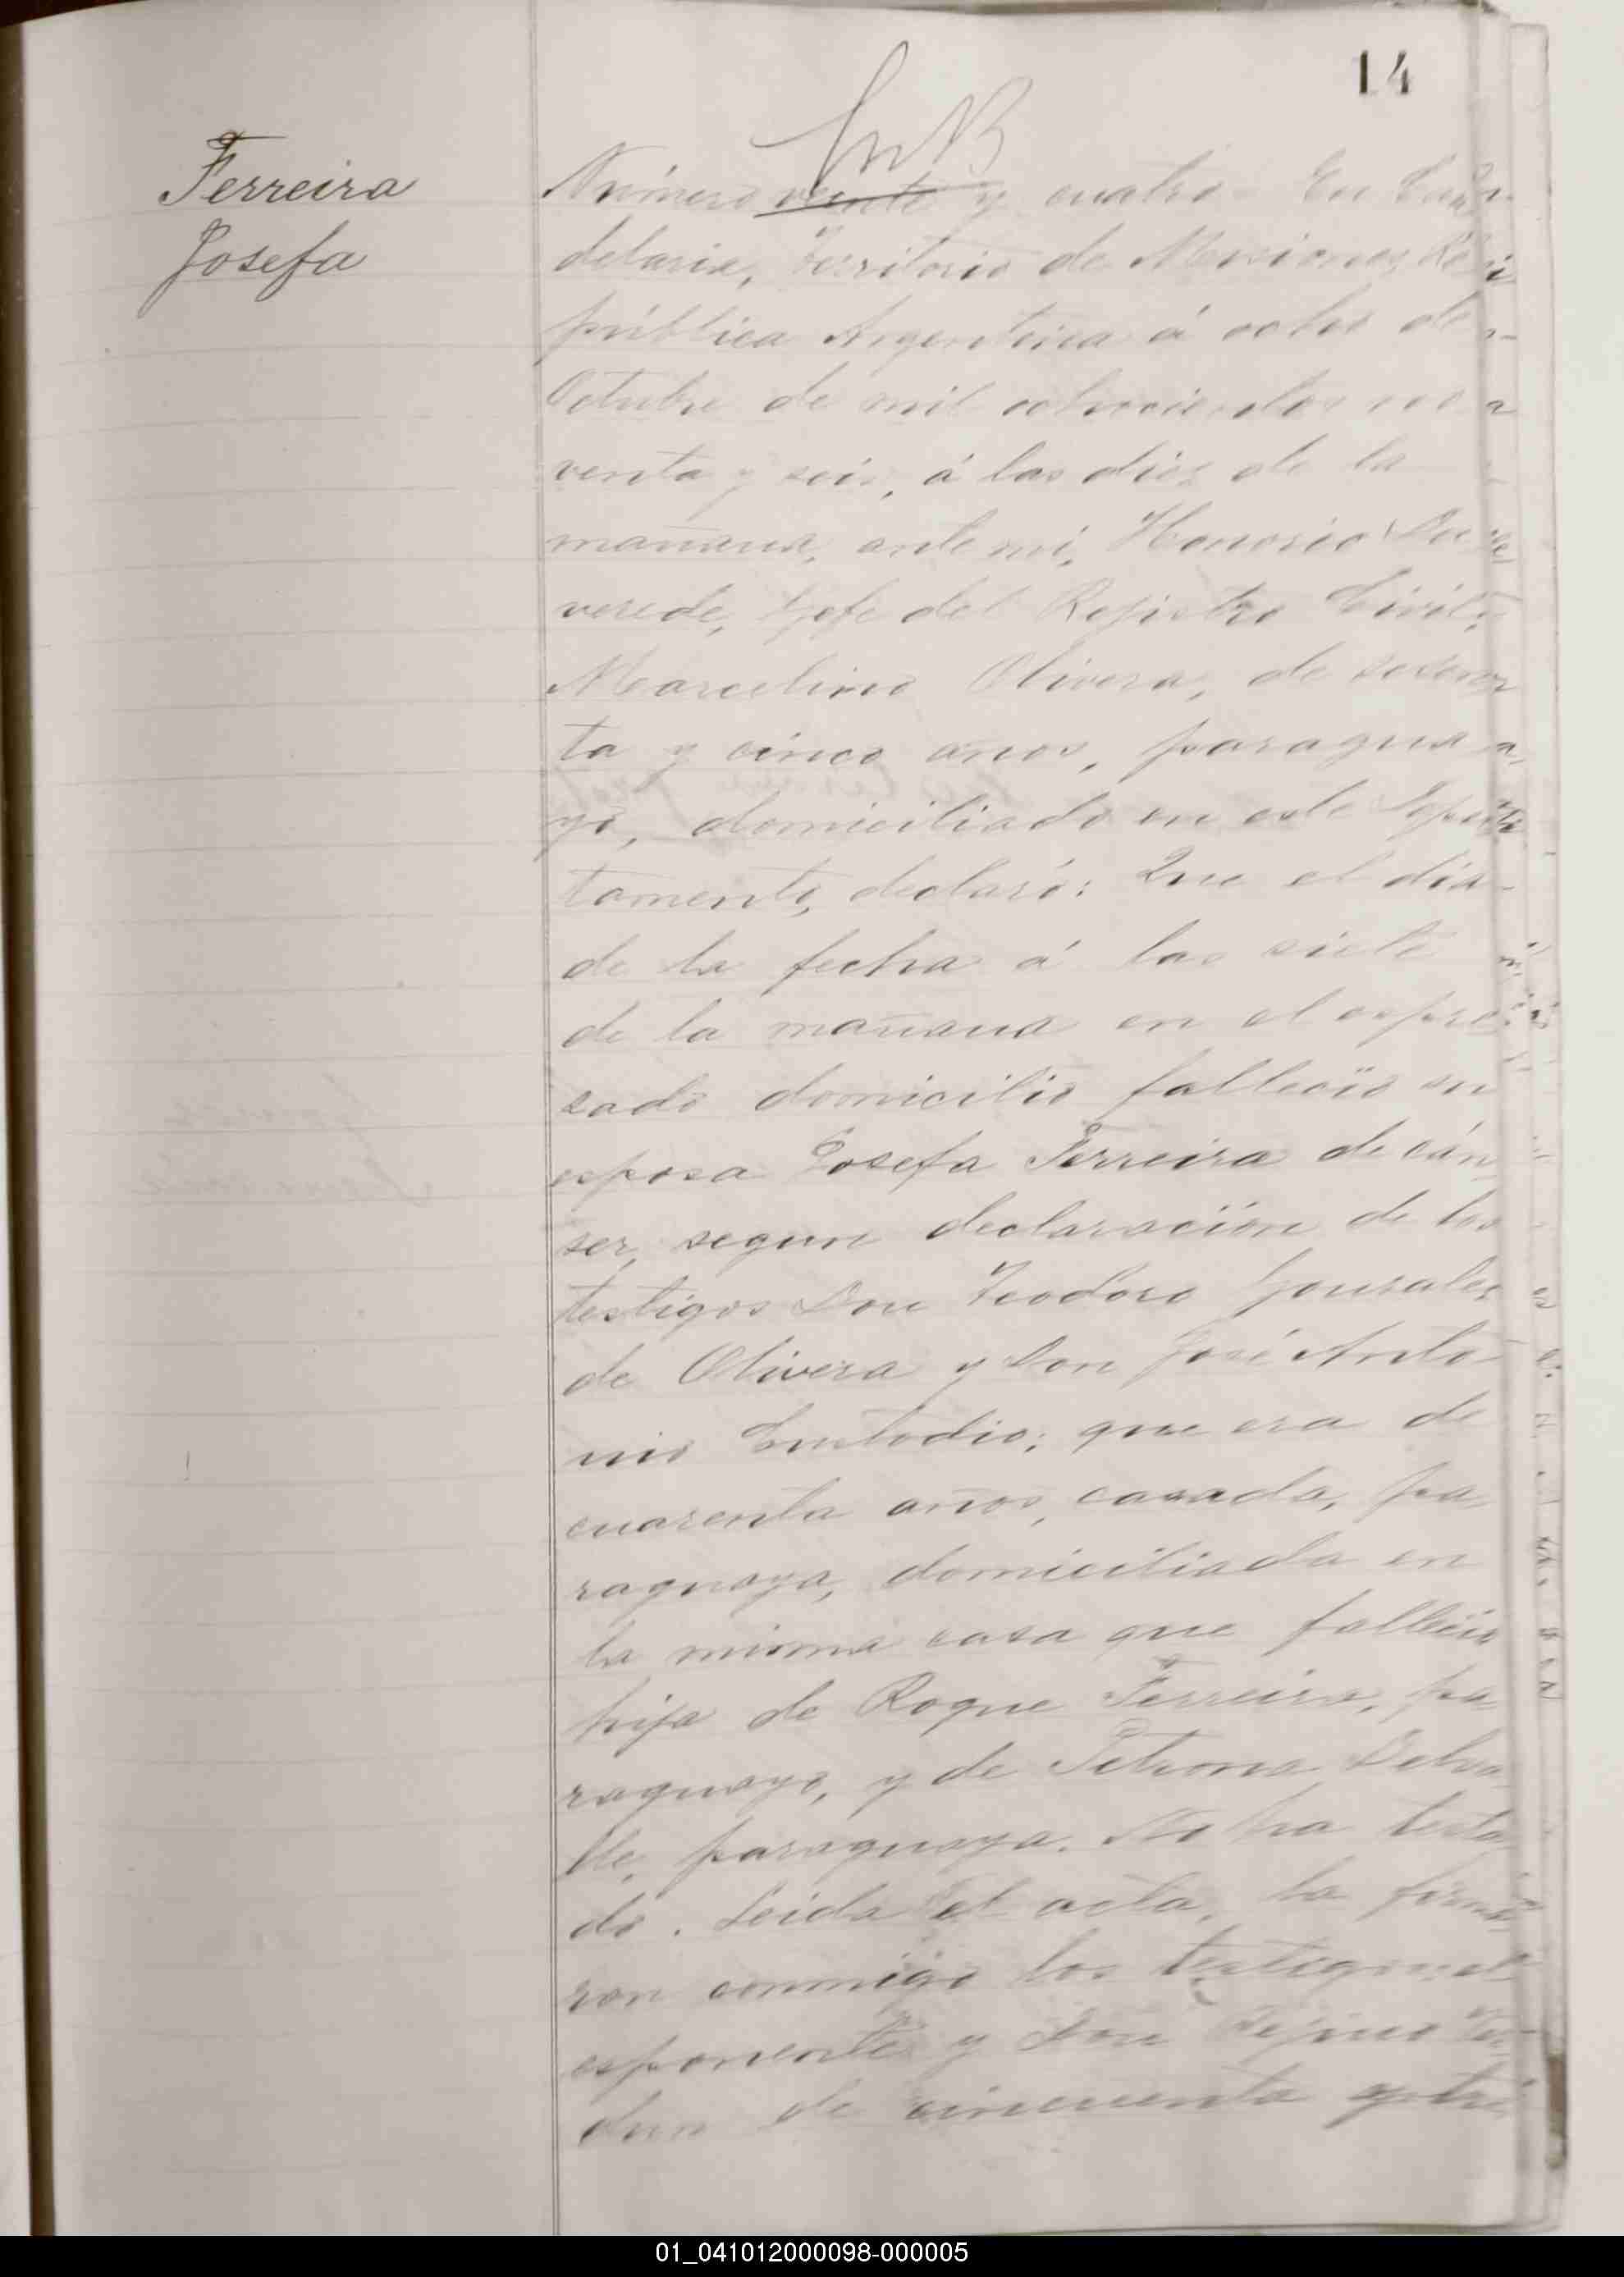 14
Ferreira
Josefa
Número veinte y cuatro. En Can
delaria, Territorio de Misiones, Re
pública Argentina á ocho de
Octubre de mil ochocientos no
venta y seis, á las diez de la
mañana, ante mi, Honorio
verede, Gefe del Registro Civil,
Marcelino Olivera, de sesen
ta y cinco años, paragua
yo, domiciliado en este Depar
tamento, declaró: Que el dia
de la fecha á las siete
de la mañana en el espre
sado domicilio falleció su
esposa Josefa Ferreira de cán
ser, segun declaración de los
testigos Don Teodoro Gonzales
de Olivera y Don José Anto
nio Custodio; que era de
cuarenta años, casada, pa
raguaya, domiciliada en
la misma casa que falleció
hija de Roque Ferreira, pa
raguayo, y de Petrona Delva
lle, paraguaya. No ha testa
do. Leida el acta, la firma
ron conmigo los testigos, el
esponente y Don
de cincuenta y tres
01_041012000098-000005